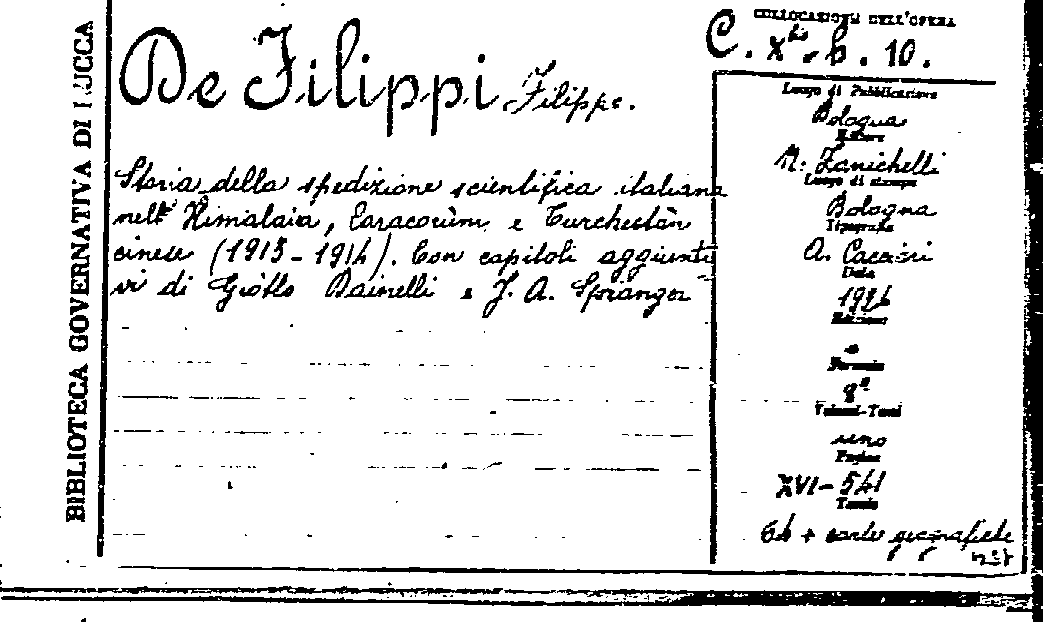 BIBLIOTECA GOVERNATIVA DI LUCCA
De Filippi Filippo.
Storia della spedizione scientifica italiana
nell' Himalaia, Caracorùm e Turchestàn
cinese (1913-1914). Con capitoli aggiunti
vi di Giotto Dainelli e J. A. Spranger
COLLOCAZIONE DELL'OPERA
C. X bis. b. 10.
Luogo di Pubblicazione
Bologna
Editore
N. Zanichelli
Luogo di stampa
Bologna
Tipografia
A. Cacciari
Data
1924
Edizione
Formato
8°
Volumi-Tomi
uno
Pagine
XVI-541
Tavole
64 + carte geografiche